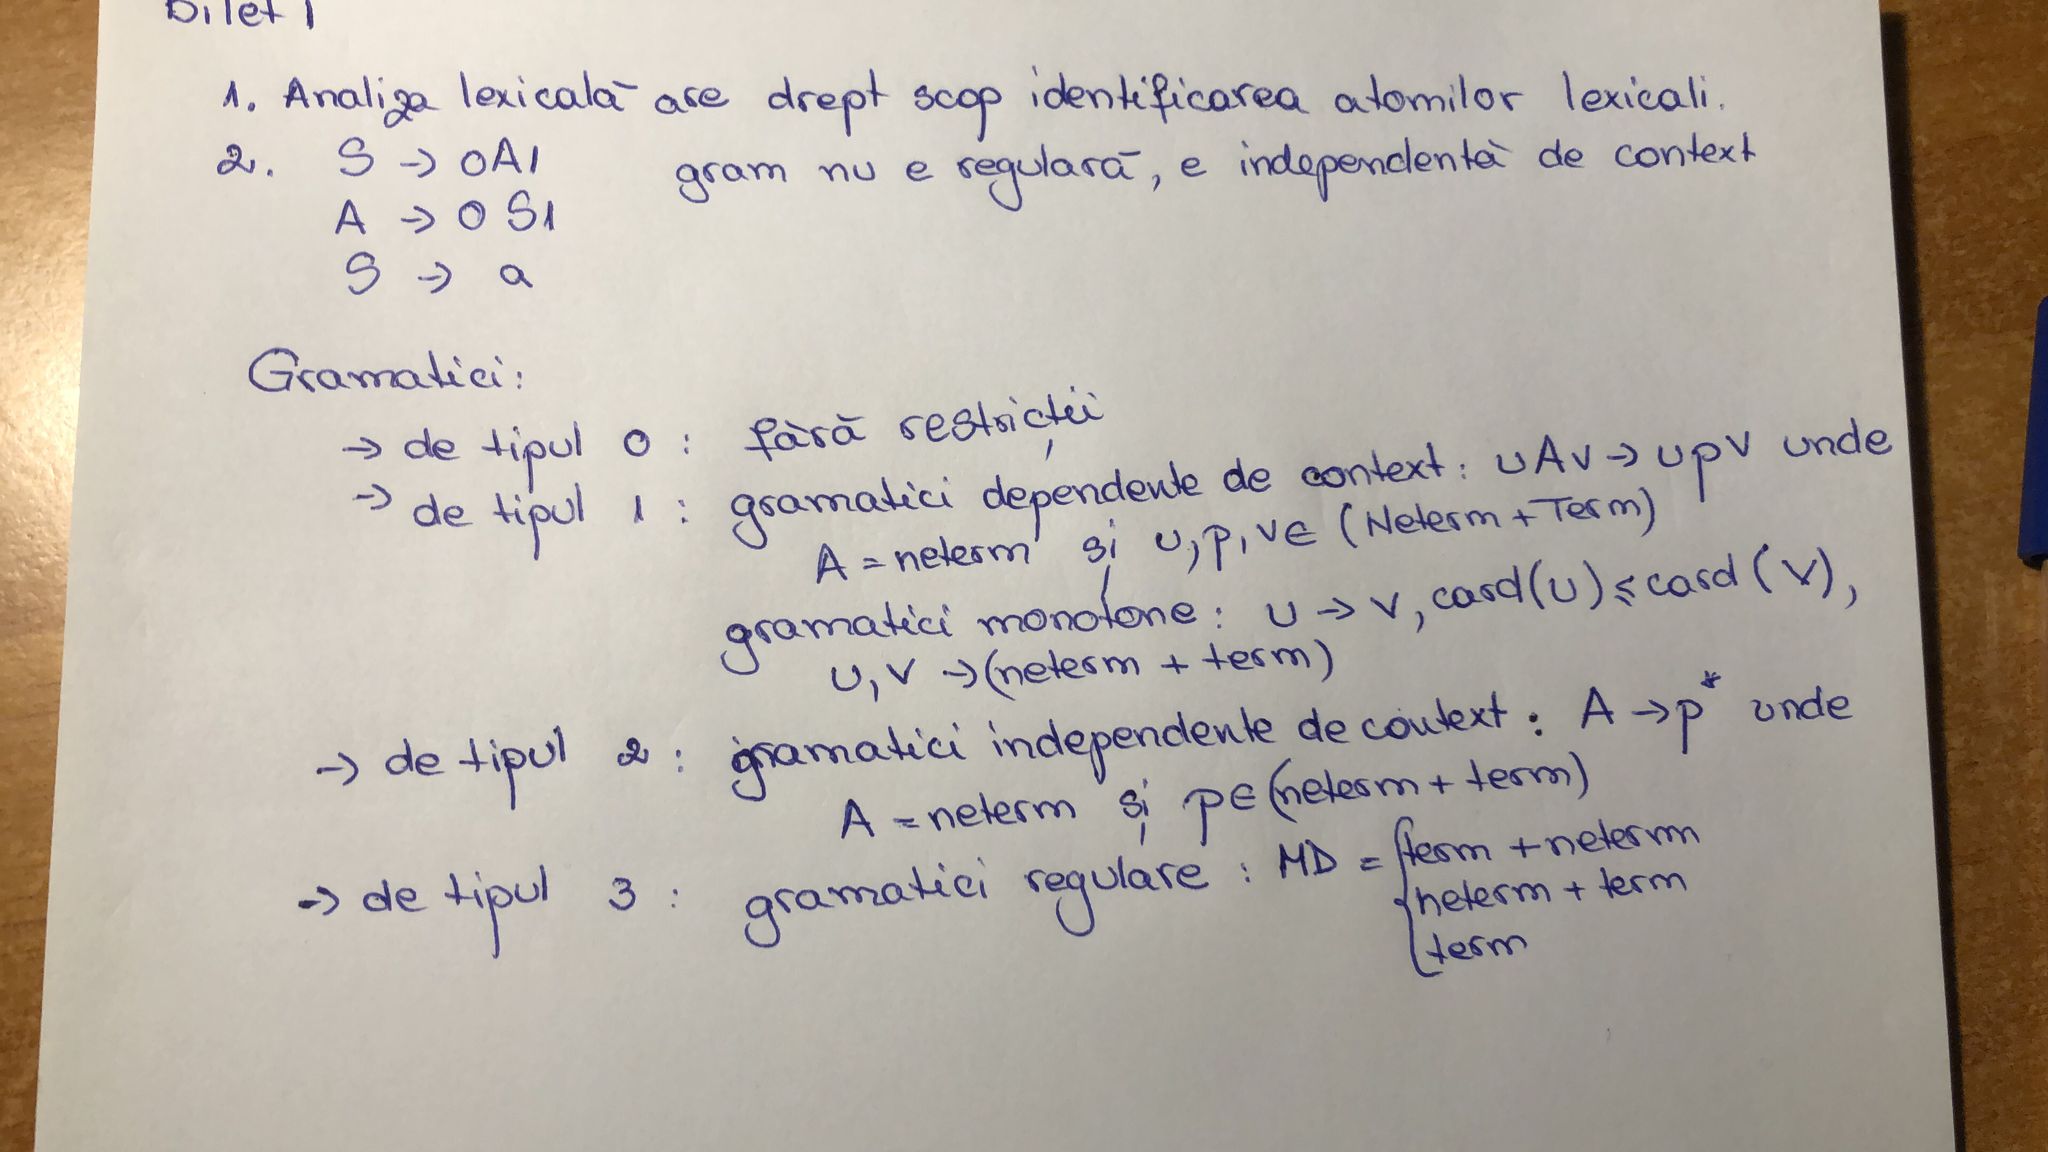 Bilet 1
1. Analiza lexicală are drept scop identificarea atomilor lexicali.
2. S → 0A1 gram nu e regulară, e independentă de context
A → 0S1
S → a
Gramatici:
→ de tipul 0 : fără restricții
→ de tipul 1 : gramatici dependente de context : uAv → upv unde
A = neterm și u, p, v ∈ (Neterm + Term)
gramatici monotone : u → v, card(u) ≤ card(v),
u, v → (neterm + term)
→ de tipul 2 : gramatici independente de context : A → p* unde
A = neterm și p ∈ (neterm + term)
→ de tipul 3 : gramatici regulare : MD = { term + neterm
neterm + term
term